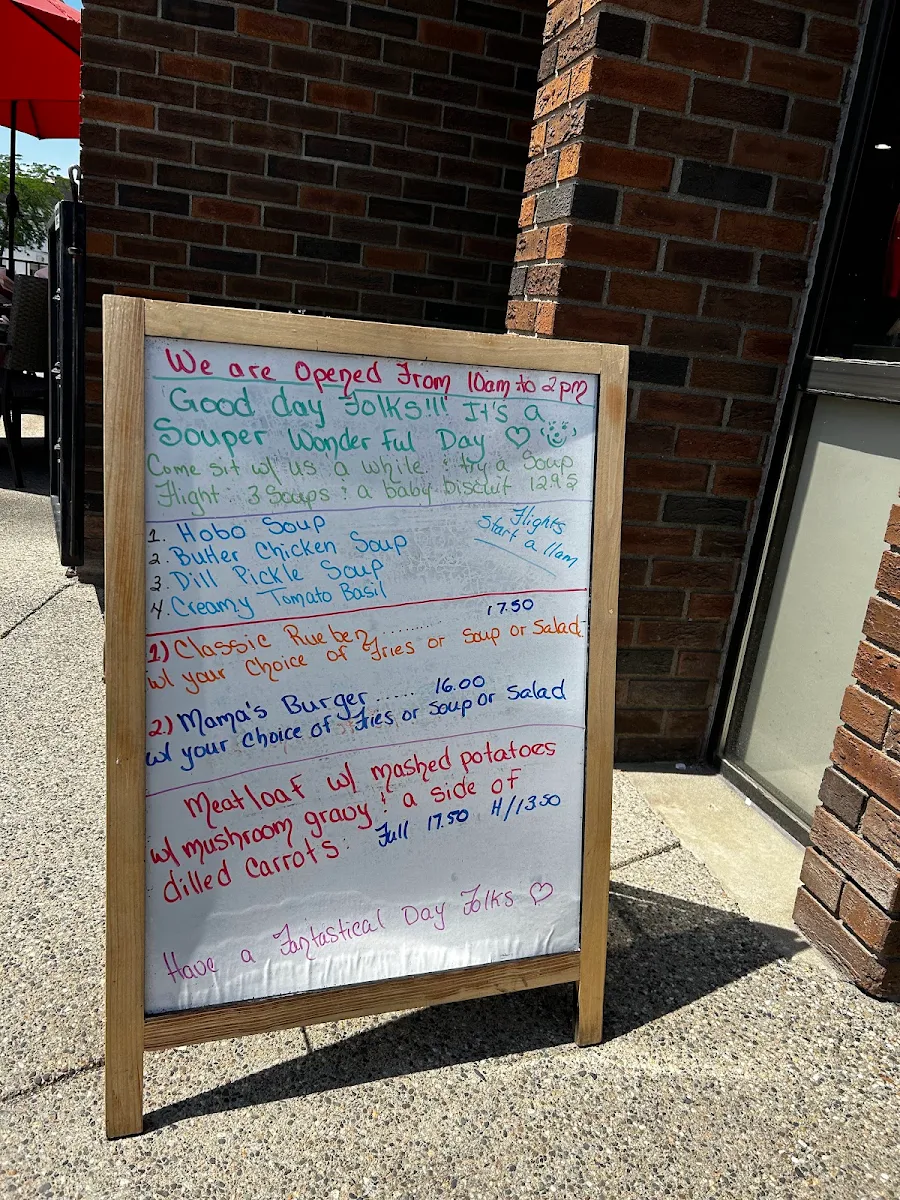 We are Opened From 10am to 2pm
Good day Folks!!! It's a
Souper Wonderful Day ♡
Come sit w/ us a while & try a Soup
Flight: 3 Soups & a baby biscuit 12.95
1. Hobo Soup
2. Butter Chicken Soup
3. Dill Pickle Soup
4. Creamy Tomato Basil
Flights
Start a 11am
1) Classic Rueben .......... 17.50
w/ your Choice of Fries or Soup or Salad
2.) Mama's Burger ..... 16.00
w/ your Choice of Fries or Soup or Salad
Meatloaf w/ mashed potatoes
w/ mushroom gravy & a side of
dilled Carrots Full 17.50 H/13.50
Have a Fantastical Day Folks ♡